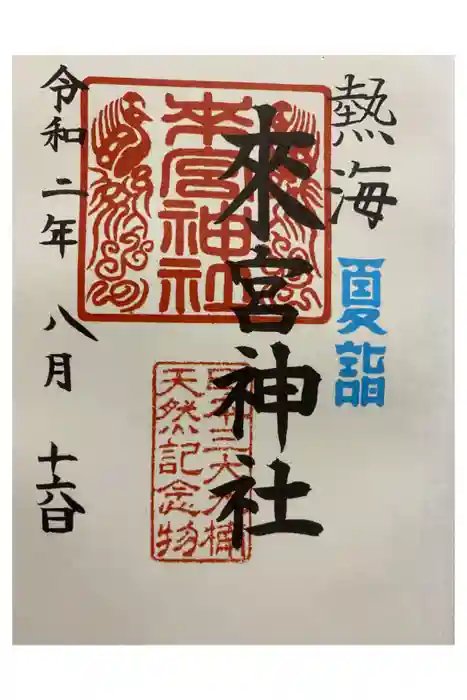 熱海
夏詣
來宮神社
來宮神社
日本三大楠
天然記念物
令和二年 八月 十六日